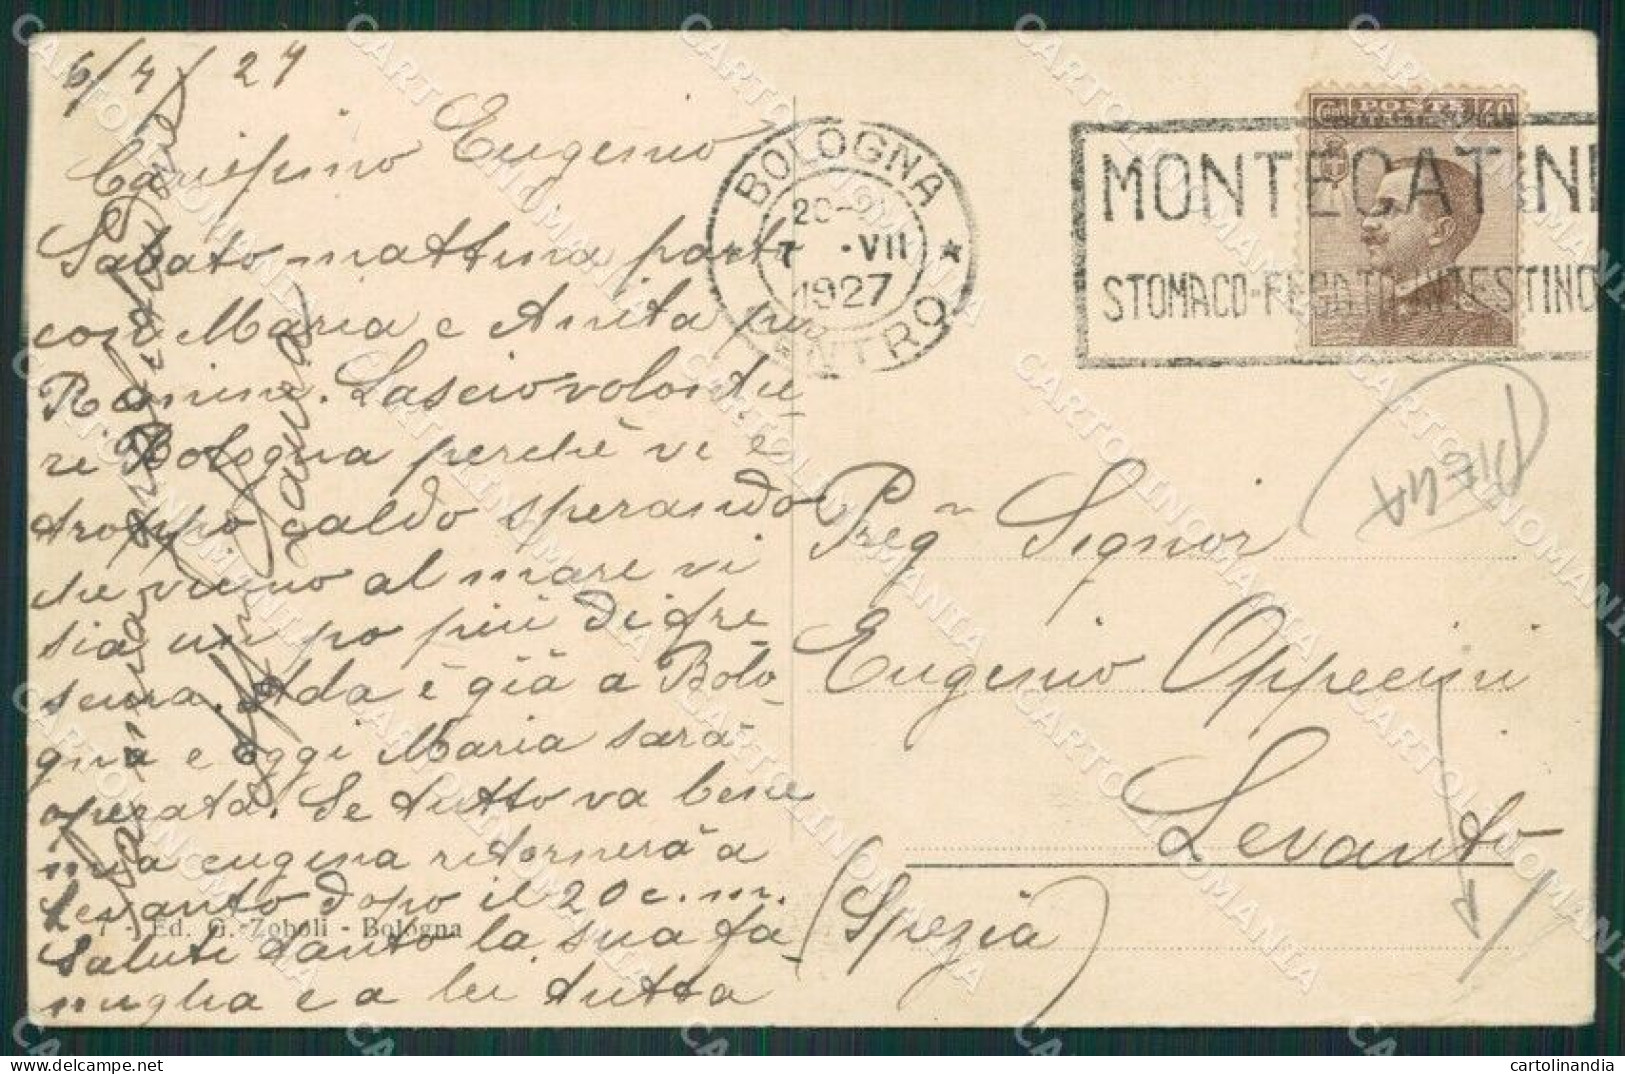 6/7/27
Carissimo Eugenio
Sabato mattina parto
con Maria e Anita per
Rimini. Lascio volontie-
ri Bologna perchè vi è
troppo caldo sperando
che vicino al mare vi
sia un po più di fre
scura. Ada è già a Bolo-
gna e oggi Maria sarà
operata. Se tutto va bene
mia cugina ritornerà a
Levanto dopo il 20 c. m.
Saluti tanto la sua fa-
miglia e a lei tutta
Laura
7 - Ed. G. Zoboli - Bologna
BOLOGNA
CENTRO
20-21
7 ·VII
1927
MONTECATINI
STOMACO-FEGATO-INTESTINO
POSTE
Cent 40
Preg Signor
Eugenio Oppecini
Levanto
(Spezia)
CARTOLINOMANIA
delcampe.net
cartolinandia